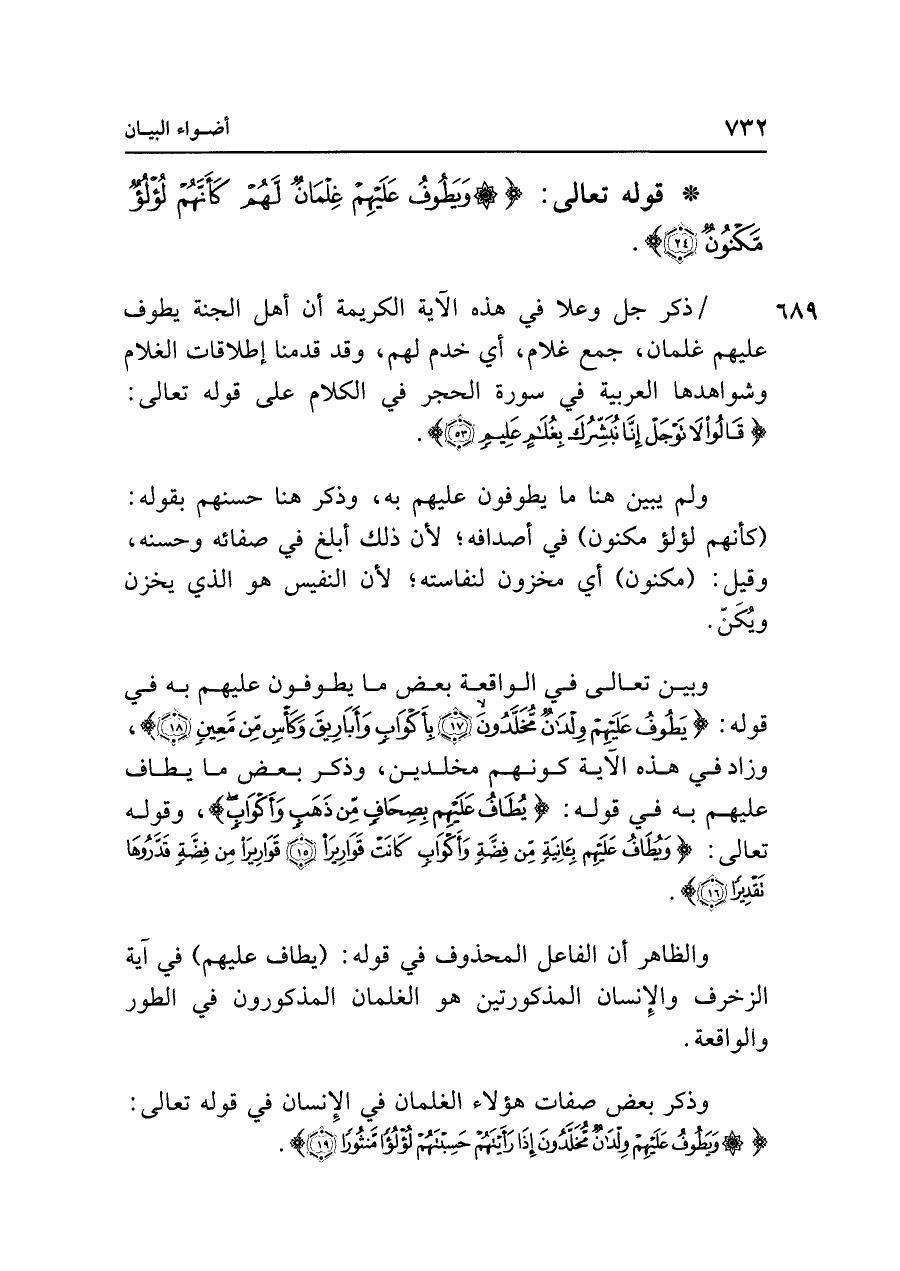 ٧٣٢ أضواء البيان
* قوله تعالى: ﴿ ۞ وَيَطُوفُ عَلَيْهِمْ غِلْمَانٌ لَّهُمْ كَأَنَّهُمْ لُؤْلُؤٌ
مَّكْنُونٌ ﴿٢٤﴾﴾ .
٦٨٩ / ذكر جل وعلا في هذه الآية الكريمة أن أهل الجنة يطوف
عليهم غلمان، جمع غلام، أي خدم لهم، وقد قدمنا إطلاقات الغلام
وشواهدها العربية في سورة الحجر في الكلام على قوله تعالى:
﴿ قَالُواْ لَا تَوْجَلْ إِنَّا نُبَشِّرُكَ بِغُلَٰمٍ عَلِيمٍ ﴿٥٣﴾﴾ .
ولم يبين هنا ما يطوفون عليهم به، وذكر هنا حسنهم بقوله:
(كأنهم لؤلؤ مكنون) في أصدافه؛ لأن ذلك أبلغ في صفائه وحسنه،
وقيل: (مكنون) أي مخزون لنفاسته؛ لأن النفيس هو الذي يخزن
ويُكَنّ.
وبين تعالى في الواقعة بعض ما يطوفون عليهم به في
قوله: ﴿ يَطُوفُ عَلَيْهِمْ وِلْدَٰنٌ مُّخَلَّدُونَ ﴿١٧﴾ بِأَكْوَابٍ وَأَبَارِيقَ وَكَأْسٍ مِّن مَّعِينٍ ﴿١٨﴾﴾ ،
وزاد في هذه الآية كونهم مخلدين، وذكر بعض ما يطاف
عليهم به في قوله: ﴿ يُطَافُ عَلَيْهِم بِصِحَافٍ مِّن ذَهَبٍ وَأَكْوَابٍ ۖ﴾ ، وقوله
تعالى: ﴿ وَيُطَافُ عَلَيْهِم بِـَٔانِيَةٍ مِّن فِضَّةٍ وَأَكْوَابٍ كَانَتْ قَوَارِيرَا۠ ﴿١٥﴾ قَوَارِيرَاْ مِن فِضَّةٍ قَدَّرُوهَا
تَقْدِيرًا ﴿١٦﴾﴾ .
والظاهر أن الفاعل المحذوف في قوله: (يطاف عليهم) في آية
الزخرف والإِنسان المذكورتين هو الغلمان المذكورون في الطور
والواقعة.
وذكر بعض صفات هؤلاء الغلمان في الإِنسان في قوله تعالى:
﴿ ۞ وَيَطُوفُ عَلَيْهِمْ وِلْدَٰنٌ مُّخَلَّدُونَ إِذَا رَأَيْتَهُمْ حَسِبْتَهُمْ لُؤْلُؤًا مَّنثُورًا ﴿١٩﴾﴾ .